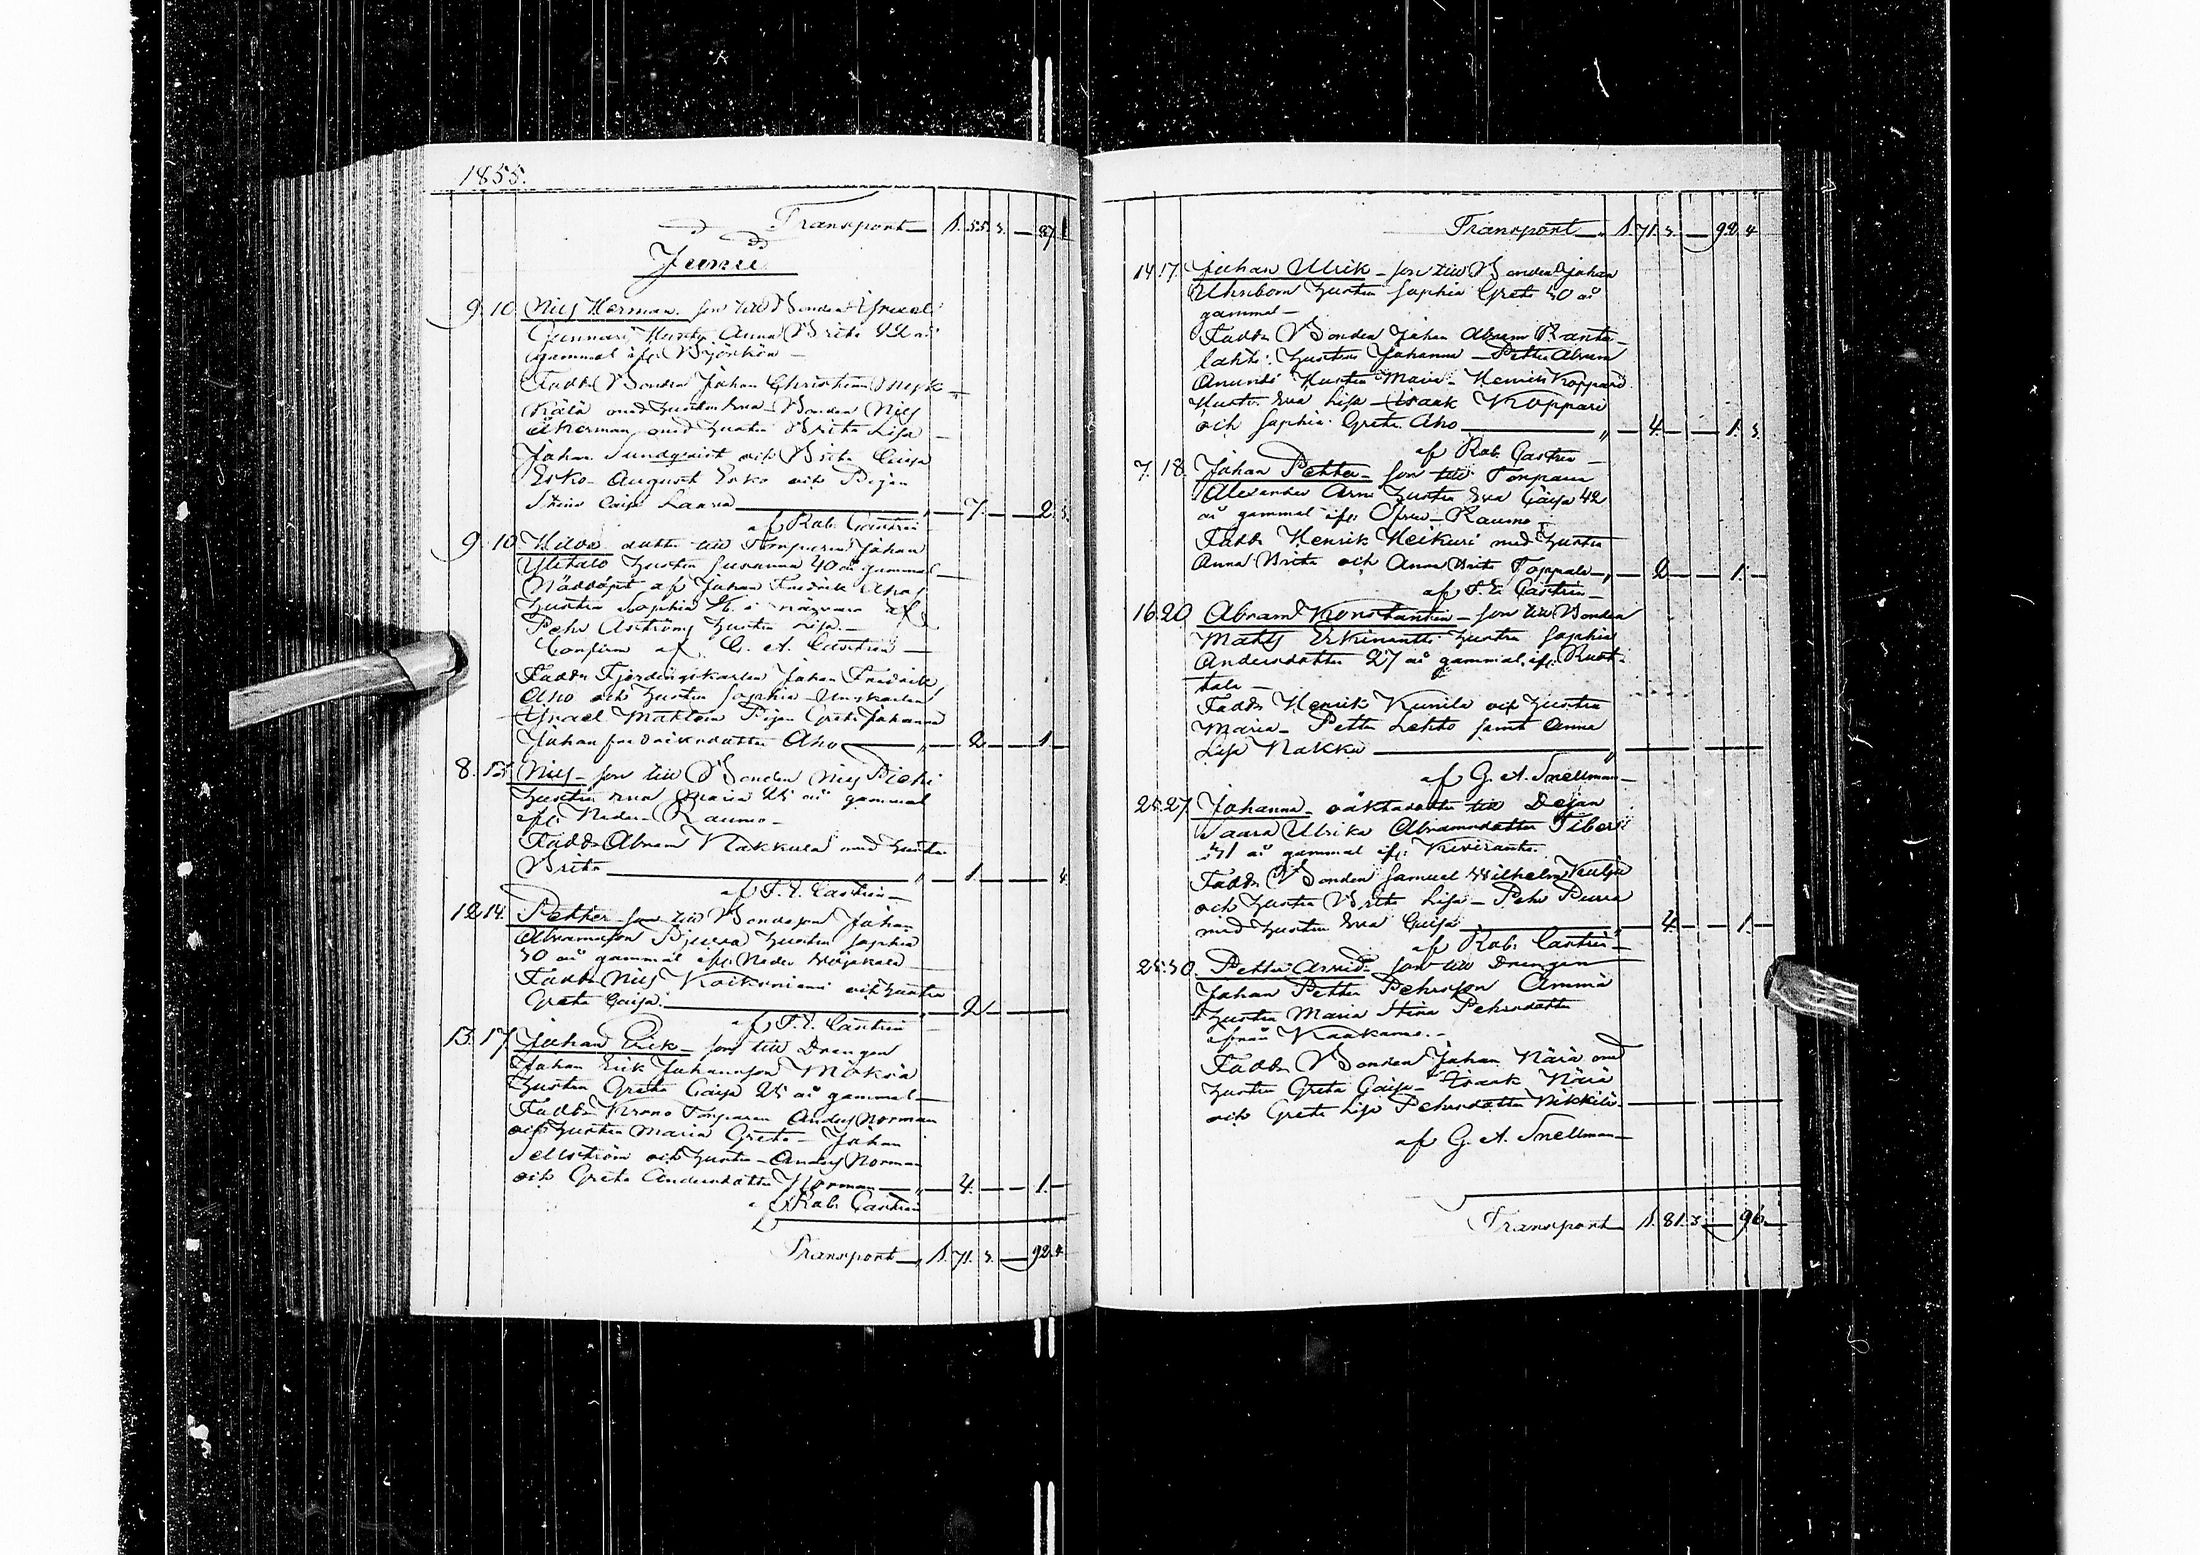 1855.
Transport 1. 55. 3. 87 1
Junii
9. 10 Nils Herman son till Bonden Israel
Junnari Hustru Anna Brita 22 år
gammal ifr. Björkön
Fadd. Bonden Johan Christian
med hustru Eva Bonden Nils
Åkerman med hustru Brita Lisa
Johan Sundqvist och Brita Caisa
Erko August Erko och Pigan
Stina Caisa Laura 7. 2. 3.
af Rab. Castrén
9. 10 Hilda dotter till Torparen Johan
Ylitalo hustru Susanna 40 år gammal
Nöddöpt af Johan Fredrik Ahos
hustru Sophia K. i närvaro af
Pehr Åströms hustru Lisa
Confirm af G. A. Castrén
Fadd. Fjerdingskarlen Johan Fredrik
Aho och hustru Sophia Ungkarlen
Israel Mattson Pigan Greta Johanna
Johan fredriksdotter Aho 2. 1
8. 13. Nils son till Bonden Nils Pieki
hustru Eva Maria 25 år gammal
ifr. Neder Raumo
Fadd. Abram Nakkula med hustru
Brita 1. 4
af T. E. Castrén
12 14. Petter son till Bondeson Johan
Abramsson hustru Sophia
30 år gammal ifr. Neder
Fadd. Nils Koikoniemi och hustru
Greta Caisa 2
af T. E. Castrén
13. 17. Johan Erik son till Drengen
Johan Erik Johansson
hustru Greta Caisa 25 år gammal
Fadd. Krono Torparen Anders Norman
och hustru Maria Greta Johan
Sellström och hustru Anders Norman
och Greta Andersdotter Norman 4. 1.
af Rab. Castrén
Transport 1. 71. 3. 92. 4
Transport 1. 71. 3. 92. 4.
14 17. Johan Ulrik son till Bonden Johan
Uhrbom hustru Sophia Greta 30 år
gammal
Fadd. Bonden Johan Abram Ranta
lahti hustru Johanna Petter Abram
Anundi Hustru Maria Henrik Koppari
Hustru Eva Lisa Isaak Koppari
och Sophia Greta Aho 4. 1. 3.
af Rab. Castrén
7. 18. Johan Petter son till Torparen
Alexander Arni hustru Eva Caisa 42
år gammal ifr. Öfver Raumo
Fadd. Henrik Heikuri med hustru
Anna Brita och Anna Brita Toppala 2 1.
af T. E. Castrén
16. 20 Abram Konstantin son till Bonden
Matts Erkinantti hustru Sophia
Andersdotter 27 år gammal ifr. Ruot
tala
Fadd. Henrik Kunila och hustru
Maria Petter Lehto samt Anna
Lisa Nakku
af G. A. Snellman
25. 27. Johanna oäktadotter till Dejan
Saara Ulrika Abramsdotter Tiberi
31 år gammal ifr. Kiviranta
Fadd. Bonden Samuel Wilhelm Kulju
och hustru Brita Lisa Pehr Puura
med hustru Eva Caisa 4. 1.
af Rab. Castrén
25. 30. Petter Arvid son till Drengen
Johan Petter Pehrsson Ämmä
hustru Maria Stina Pehrsdotter
ifrån Kaakamo
Fadd. Bonden Johan Närä med
hustru Greta Caisa Isaak Närä
och Greta Lisa Pehrsdotter Nikkilä
af G. A. Snellman
Transport 1. 81. 3. 96.